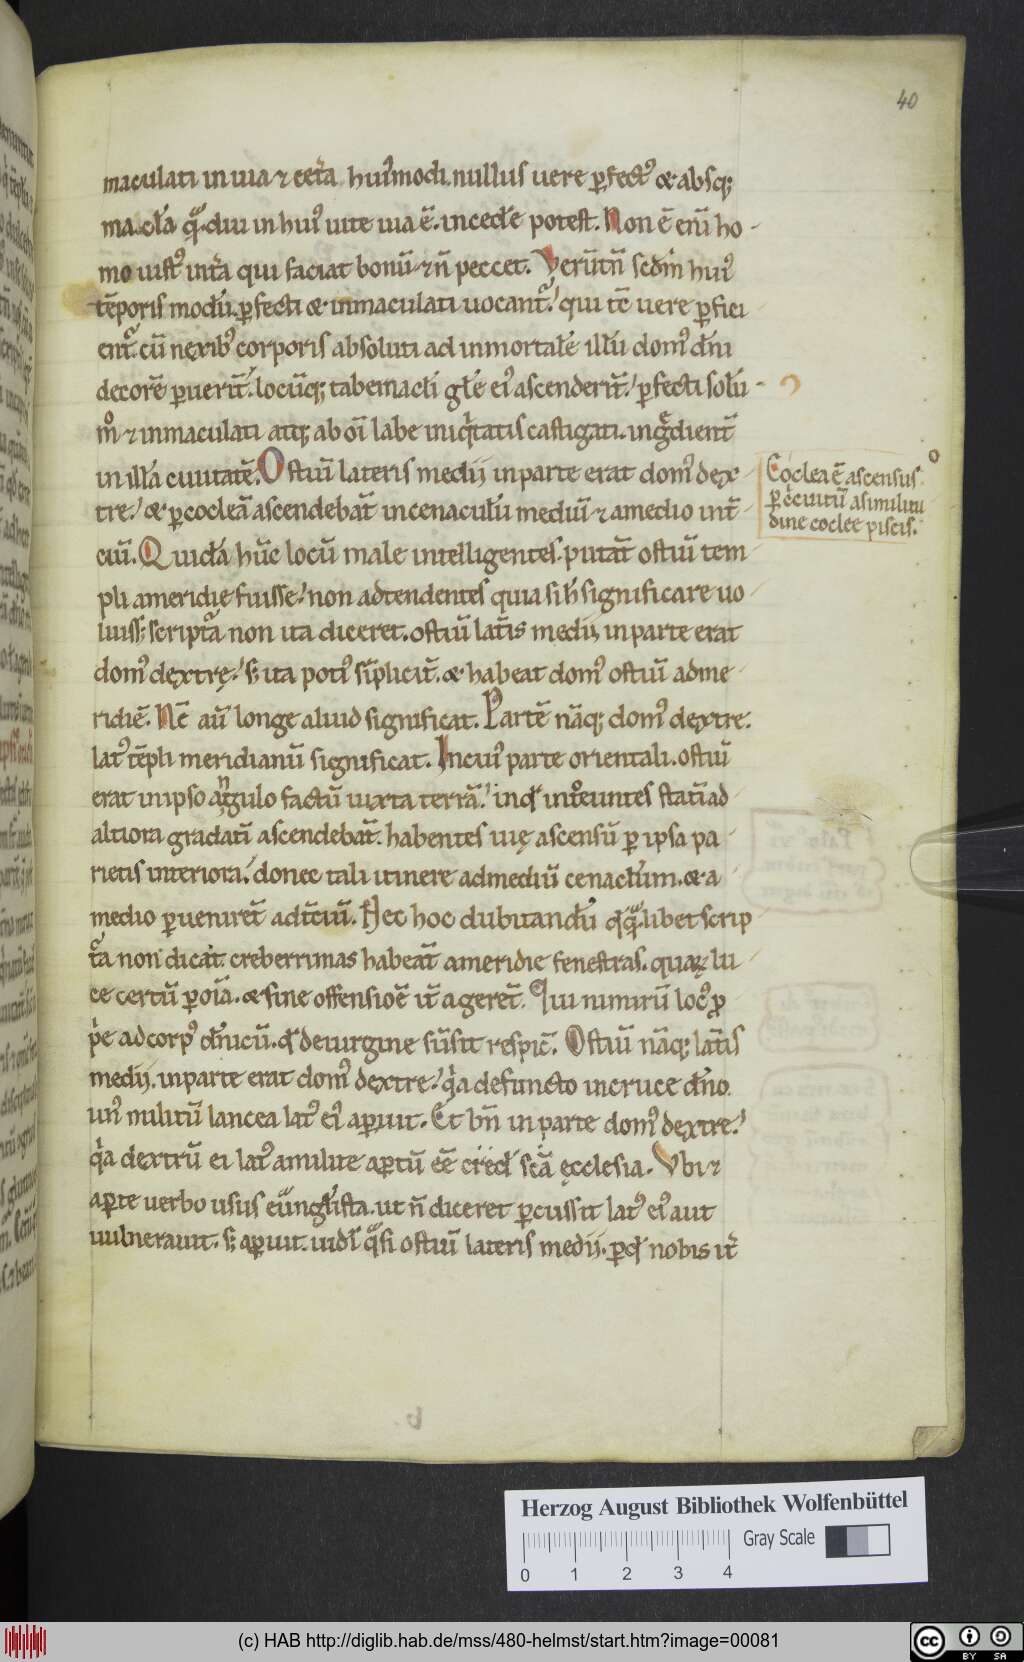 40
maculati in uia ⁊ cet̃a huꝰmodi. nullus uere ꝑfectꝰ & absq;
macl̃a q̃ diu in huiꝰ uite uia ẽ. incedꝰe potest. Non ẽ enĩ ho-
mo iustꝰ int̃ra qui faciat bonũ ⁊ ñ peccet. Verũtñ scdm huiꝰ
tẽporis modũ. ꝑfecti & inmaculati uocant̃. qui tc̃ uere ꝑfici
ent̃. cũ nexibꝰ corporis absoluti ad inmortal̃e illã domũ dñi
decorẽ ꝑuerĩt. locũq; tabernacl̃i gl̃e eiꝰ ascenderĩt. ꝑfecti solũ-
m̊ ⁊ inmaculati atq; ab oĩ labe iniq̇tatis castigati. ing̃dient̃
in illã ciuitatẽ. Ostiũ lateris medij in parte erat domꝰ dex
tre. & ꝑ cocleã ascendebãt in cenacul̃u mediũ ⁊ a medio in t̃-
ciũ. Quidã hũc locũ male intelligentes. putãt ostiũ tem
pli a meridie fuisse. non adtendentes quia si h̃ significare uo
luiss; script̃a non ita diceret. ostiũ lat̃is medij in parte erat
domꝰ dextrę. s; ita potiꝰ sĩplicit̃. & habeat domꝰ ostiũ ad me
ridiẽ. Nc̃ aũ longe aliud significat. Partẽ nãq; domꝰ dextre.
latꝰ tẽpli meridianũ significat. In cuiꝰ parte orientali. ostiũ
erat in ipso angulo factũ iuxta terrã. in qđ int̊euntes statĩ ad
altiora gradatĩ ascendebãt. habentes uię ascensũ ꝑ ipsa pa
rietis interiora. donec tali itinere ad mediũ cenacl̃um. & a
medio ꝑuenirẽt ad t̃ciũ. Nec hoc dubitandũ qđ q̃libet scrip
t̃a non dicat. creberrimas habeãt a meridie fenestras. quaꝝ lu
ce certũ ꝑ oĩa. & sine offensioẽ it̃ agerẽt. Qui nimirũ locꝰ ꝓ
p̃e ad corpꝰ dñicũ. qđ de uirgine sũsit respic̃. Ostiũ nãq; lat̃is
medij. in parte erat domꝰ dextre. q̇a defuncto in cruce dño.
unꝰ militũ lancea latꝰ eiꝰ aꝑuit. Et bñ in parte domꝰ dextre.
q̇a dextrũ ei latꝰ a milite aꝑtũ eẽ credit̃ scã ęcclesia. Vbi ⁊
aꝑte uerbo usus euãngl̃ista. ut ñ diceret ꝑcussit latꝰ eiꝰ aut
uulnerauit. s; aꝑuit. uidl̃ q̃si ostiũ lateris medij. ꝑ qđ nobis it̃
Coclea ẽ ascensus
ꝑ c̃cuitũ a similitu
dine coclee piscis.
Herzog August Bibliothek Wolfenbüttel
0 1 2 3 4
Gray Scale
(c) HAB http://diglib.hab.de/mss/480-helmst/start.htm?image=00081
cc BY SA